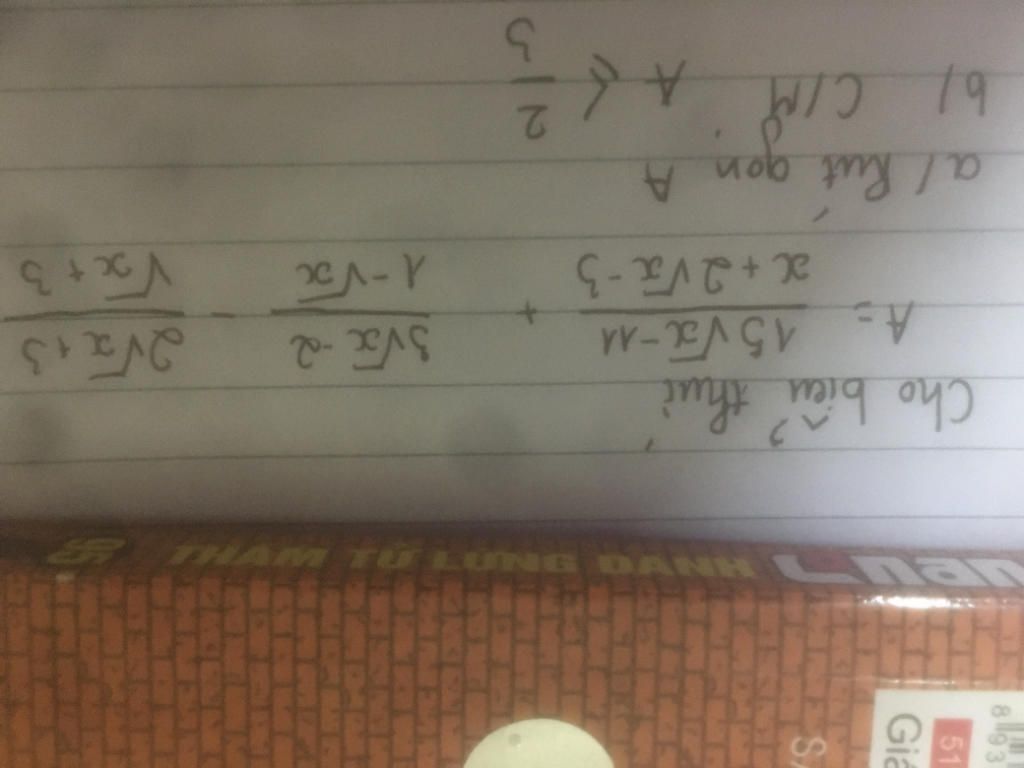 Cho biểu thức
A = \frac{15\sqrt{x}-11}{x+2\sqrt{x}-3} + \frac{3\sqrt{x}-2}{1-\sqrt{x}} - \frac{2\sqrt{x}+3}{\sqrt{x}+3}
a/ Rút gọn A
b/ C/M A ≤ \frac{2}{3}
THÁM TỬ LỪNG DANH
95
51
893
Giá